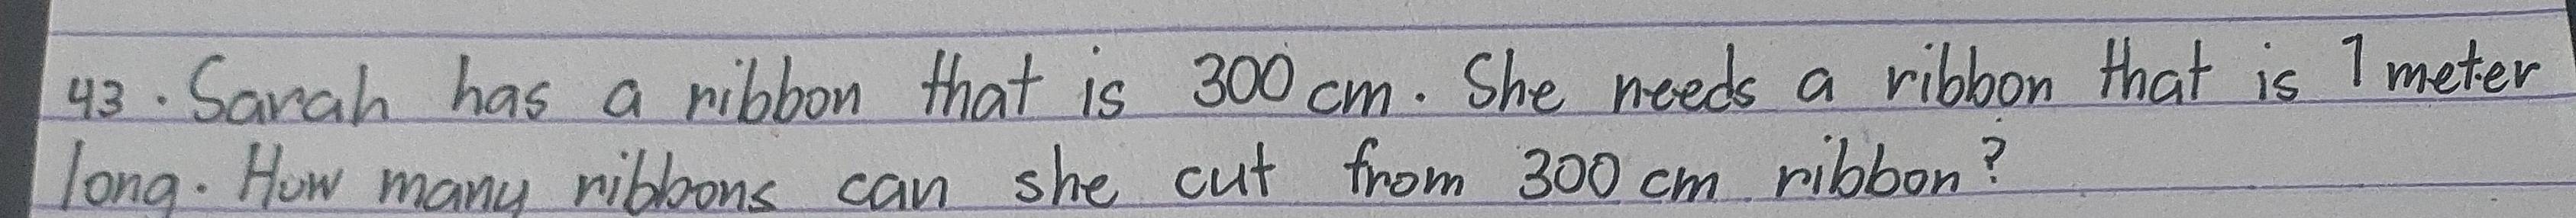 43. Sarah has a ribbon that is 300 cm. She needs a ribbon that is 1 meter
long. How many ribbons can she cut from 300 cm ribbon?